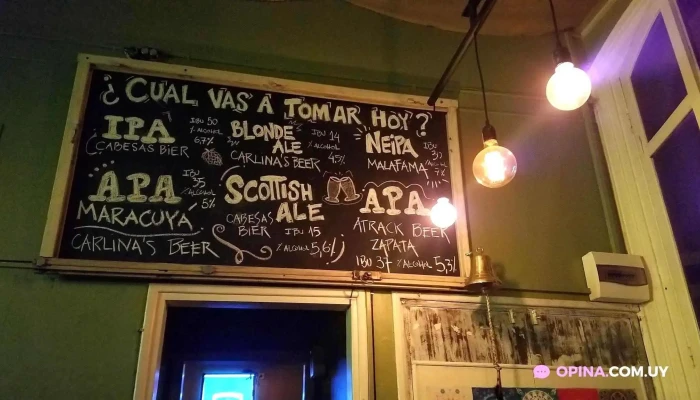 ¿CUAL VAS A TOMAR HOY?
IPA
IBU 50
% ALCOHOL
6,7%
CABESAS BIER
BLONDE
ALE
IBU 14
% ALCOHOL
4,5%
CARLINA'S BEER
NEIPA
IBU
MALAFAMA
% ALCOHOL
7%
APA
IBU
35
% ALCOHOL
5%
MARACUYA
CARLINA'S BEER
SCOTTISH
ALE
CABESAS
BIER
IBU 15
% ALCOHOL 5,6%
APA
ATRACK BEER
ZAPATA
IBU 37 % ALCOHOL 5,3%
OPINA.COM.UY